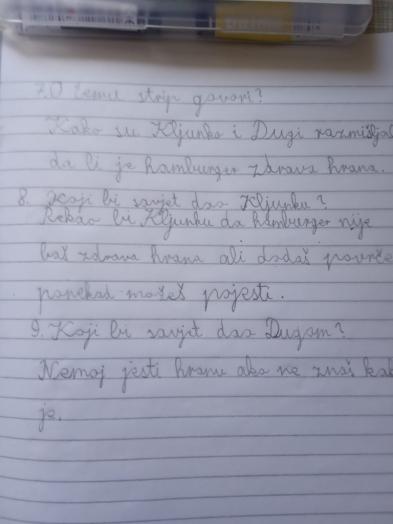 7. O čemu strip govori?
Kako su Kljunko i Dugi razmišljal
da li je hamburger zdrava hrana.
8. Koji bi savjet dao Kljunku?
Rekao bi Kljunku da hamburger nije
baš zdrava hrana ali dodaš povrće
ponekad možeš pojesti.
9. Koji bi savjet dao Dugom?
Nemoj jesti hranu ako ne znaš kak
je.